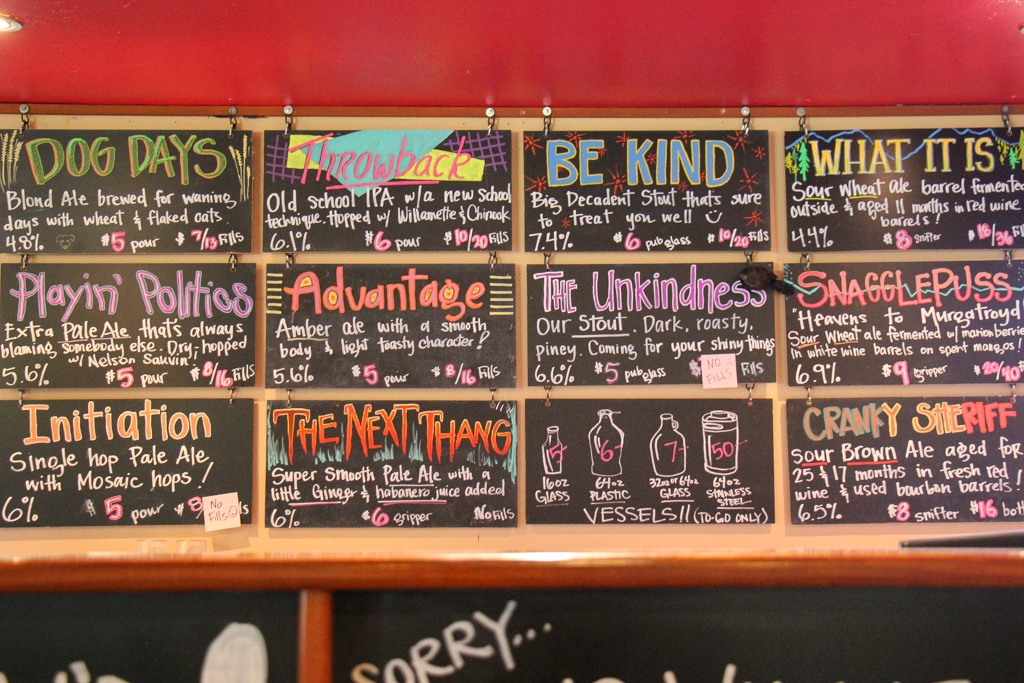 DOG DAYS
Blond Ale brewed for waning
days with wheat & flaked oats.
4.8% $5 pour $7/13 Fills
Throwback
Old school IPA w/a new school
technique. Hopped w/ Willamette & Chinook.
6.1% $6 pour $10/20 Fills
BE KIND
Big Decadent Stout that's sure
to treat you well
7.4% $6 pub glass $10/20 Fills
WHAT IT IS
Sour Wheat ale barrel fermented
outside & aged 11 months in red wine
barrels!
4.4% $8 snifter $18/36 Fills
Playin' Politics
Extra Pale Ale that's always
blaming somebody else. Dry, hopped
w/ Nelson Sauvin.
5.6% $5 pour $8/16 Fills
Advantage
Amber ale with a smooth
body & light toasty character!
5.6% $5 pour $8/16 Fills
THE Unkindness
Our Stout. Dark, roasty,
piney. Coming for your shiny things
6.6% $5 pub glass $
NO
FILLS
SNAGGLEPUSS
"Heavens to Murgatroyd
Sour Wheat ale fermented w/ marionberries
in white wine barrels on spent mangos!
6.9% $9 gripper $20/40
Initiation
Single hop Pale Ale
with Mosaic hops!
6% $5 pour $8 ls
No
Fills
THE NEXT THANG
Super Smooth Pale Ale with a
little Ginger & habanero juice added
6% $6 gripper No Fills
5 6 7 50
16oz 64oz 32oz or 64oz 64oz
GLASS PLASTIC GLASS STAINLESS
STEEL
VESSELS!! (TO-GO ONLY)
CRANKY SHERIFF
Sour Brown Ale aged for
25 & 17 months in fresh red
wine & used bourbon barrels!
6.5% $8 snifter $16 bott
SORRY...